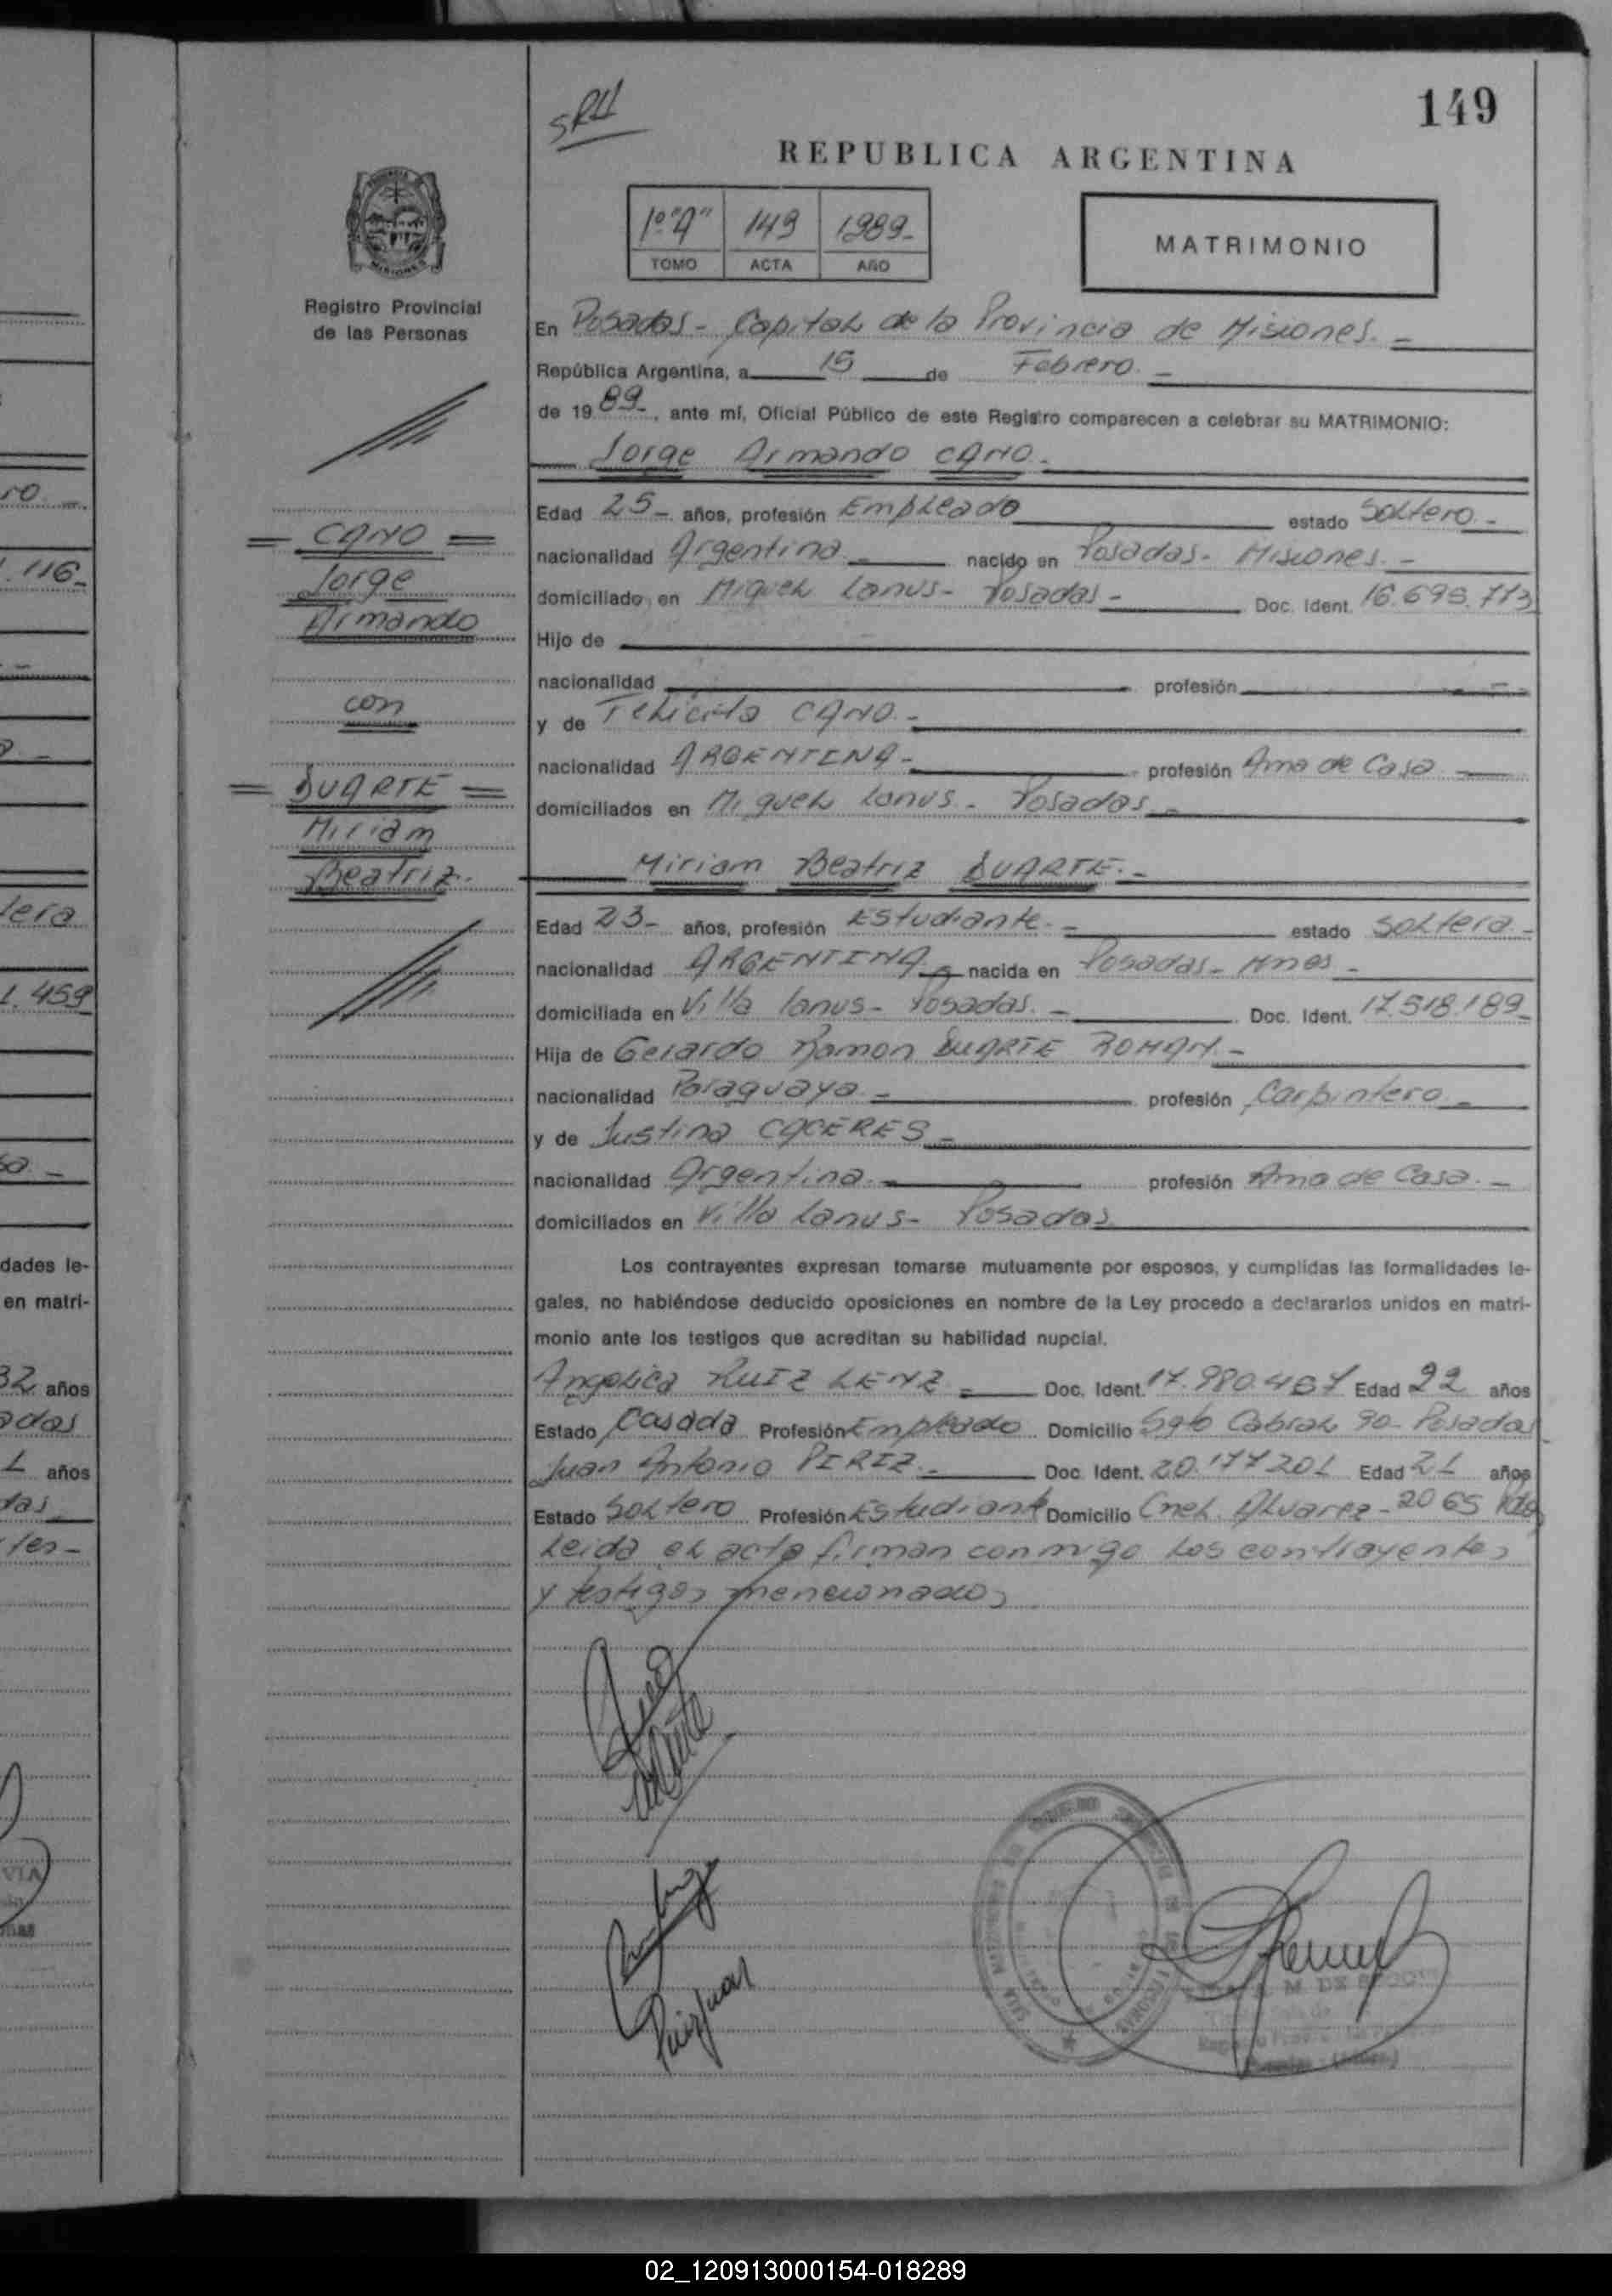 149
SRH
REPUBLICA ARGENTINA
1º "A" 149 1989.-
TOMO ACTA AÑO
MATRIMONIO
Registro Provincial
de las Personas
En Posadas - Capital de la Provincia de Misiones. -
República Argentina, a 15 de Febrero. -
de 19 89 -, ante mí, Oficial Público de este Registro comparecen a celebrar su MATRIMONIO:
Jorge Armando CANO. -
Edad 25 - años, profesión Empleado estado Soltero -
nacionalidad Argentina - nacido en Posadas - Misiones. -
domiciliado en Miguel Lanus - Posadas - Doc. Ident.
Hijo de
nacionalidad profesión
y de Felicita CANO. -
nacionalidad ARGENTINA - profesión Ama de Casa
domiciliados en Miguel Lanus - Posadas -
= CANO =
Jorge
Armando
con
= DUARTE =
Miriam
Beatriz.
Miriam Beatriz DUARTE. -
Edad 23 - años, profesión Estudiante - estado Soltera -
nacionalidad ARGENTINA - nacida en Posadas - Mnes -
domiciliada en Villa Lanus - Posadas. - Doc. Ident. 17.518.189 -
Hija de Gerardo Ramon DUARTE ROMAN -
nacionalidad Paraguaya - profesión Carpintero -
y de Justina CACERES -
nacionalidad Argentina. - profesión Ama de Casa. -
domiciliados en Villa Lanus - Posadas
Los contrayentes expresan tomarse mutuamente por esposos, y cumplidas las formalidades le-
gales, no habiéndose deducido oposiciones en nombre de la Ley procedo a declararlos unidos en matri-
monio ante los testigos que acreditan su habilidad nupcial.
Angelica RUIZ LENZ - Doc. Ident. Edad 22 años
Estado Casada Profesión Empleado Domicilio Sgto Cabral 90 - Posadas
Juan Antonio Doc. Ident. 20.177.201 Edad 21 años
Estado Soltero Profesión Estudiante Domicilio Cnel. Alvarez - 2065 Pdas
Leida el acta firman conmigo los contrayentes
y testigos mencionados
02_120913000154-018289